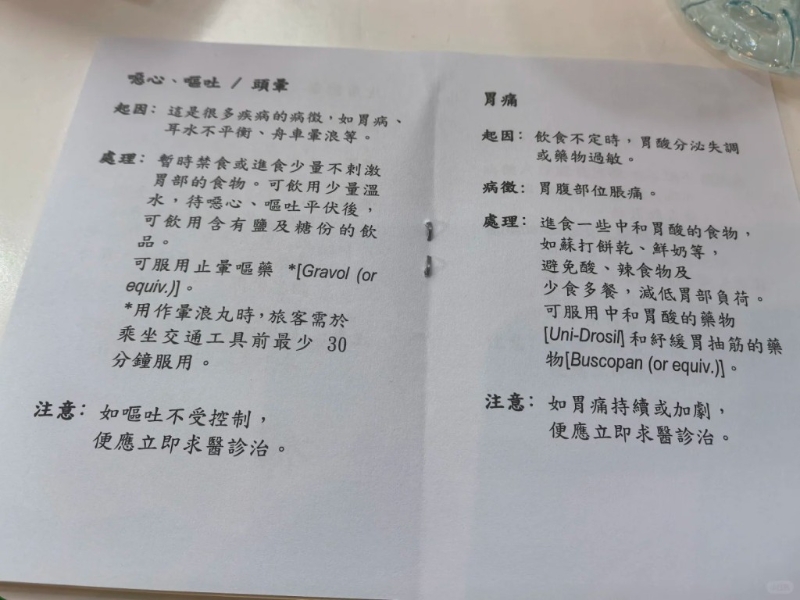 噁心、嘔吐 / 頭暈
起因：這是很多疾病的病徵，如胃病、
耳水不平衡、舟車暈浪等。
處理：暫時禁食或進食少量不刺激
胃部的食物。可飲用少量溫
水，待噁心、嘔吐平伏後，
可飲用含有鹽及糖份的飲
品。
可服用止暈嘔藥 *[Gravol (or
equiv.)]。
*用作暈浪丸時，旅客需於
乘坐交通工具前最少 30
分鐘服用。
注意：如嘔吐不受控制，
便應立即求醫診治。
胃痛
起因：飲食不定時，胃酸分泌失調
或藥物過敏。
病徵：胃腹部位脹痛。
處理：進食一些中和胃酸的食物，
如蘇打餅乾、鮮奶等，
避免酸、辣食物及
少食多餐，減低胃部負荷。
可服用中和胃酸的藥物
[Uni-Drosil] 和紓緩胃抽筋的藥
物[Buscopan (or equiv.)]。
注意：如胃痛持續或加劇，
便應立即求醫診治。